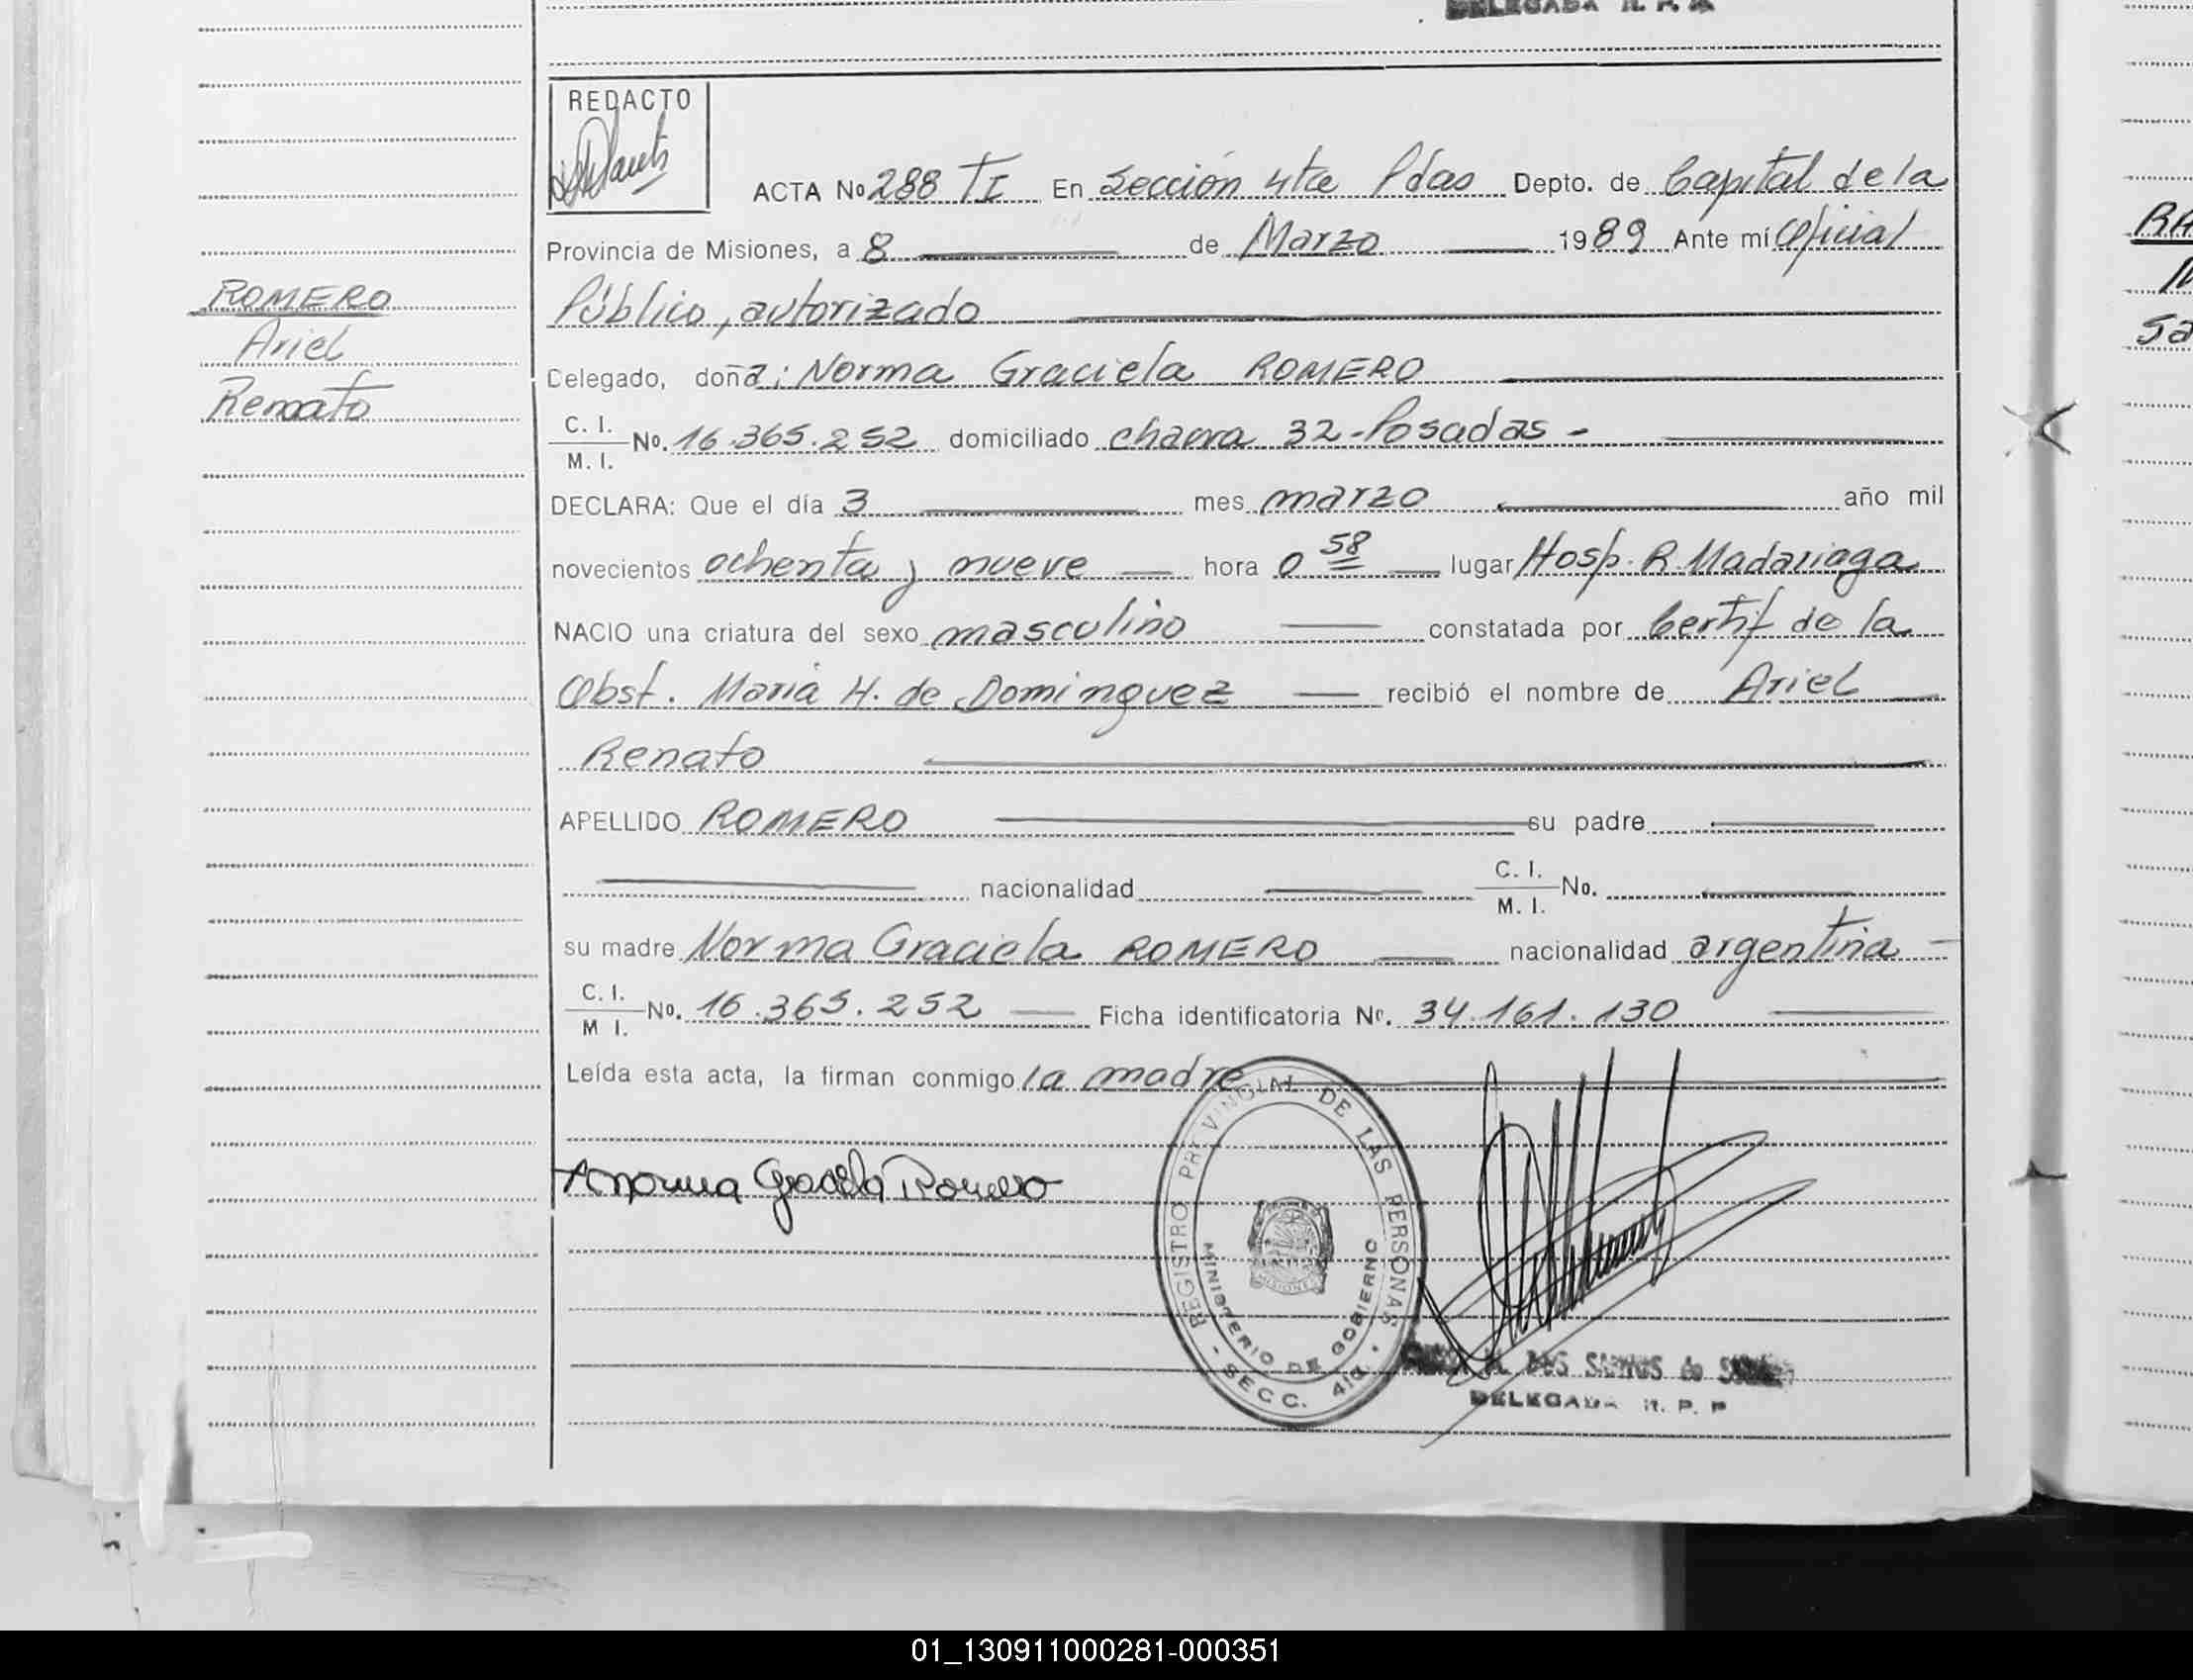 DELEGADA R. P. P.
REDACTO
ACTA No 288 TI En Sección 4ta Pdas Depto. de Capital de la
Provincia de Misiones, a 8 de Marzo 1989 Ante mí Oficial
Público, autorizado
Delegado, doña: Norma Graciela ROMERO
C. I.
M. I. No. 16.365.252 domiciliado chacra 32-Posadas-
DECLARA: Que el día 3 mes marzo año mil
novecientos ochenta y nueve hora 0 58 lugar Hosp. R. Madariaga
NACIO una criatura del sexo masculino constatada por Certif de la
Obst. María H. de Dominguez recibió el nombre de Ariel
Renato
APELLIDO ROMERO su padre
nacionalidad C. I.
M. I. No.
su madre Norma Graciela ROMERO nacionalidad argentina
C. I.
M I. No. 16.365.252 Ficha identificatoria No. 34.161.130
Leída esta acta, la firman conmigo la madre
Norma Graciela Romero
REGISTRO PROVINCIAL DE LAS PERSONAS
MINISTERIO DE GOBIERNO
SECC. 4ta.
MISIONES
DOS SANTOS de
DELEGADA R. P. P
ROMERO
Ariel
Renato
RA
M
Sa
01_130911000281-000351